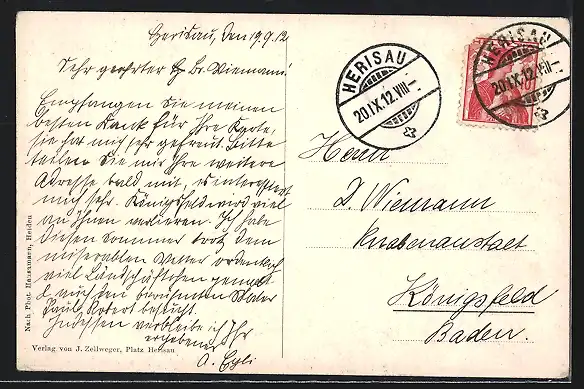 Herisau, den 19.9.12
Sehr geehrter H. Br. Wiemann!
Empfangen Sie meinen
besten Dank für Ihre Karte,
sie hat mich sehr gefreut. Bitte
teilen Sie mir Ihre weitere
Adresse bald mit, es interessiert
mich sehr. Königsfeld wird viel
an Ihnen verlieren. Ich habe
diesen Sommer trotz dem
miserablen Wetter ordentlich
viel Landschäftchen gemalt
& auch den berühmten Maler
Paul Robert besucht.
Indessen verbleibe ich Ihr
ergebener
A. Egli
Nach Phot. Hausamann, Heiden
Verlag von J. Zellweger, Platz Herisau
HERISAU
20.IX.12.VIII-
HERISAU
20.IX.12.VIII-
Herrn
D. Wiemann
Knabenanstalt
Königsfeld
Baden.